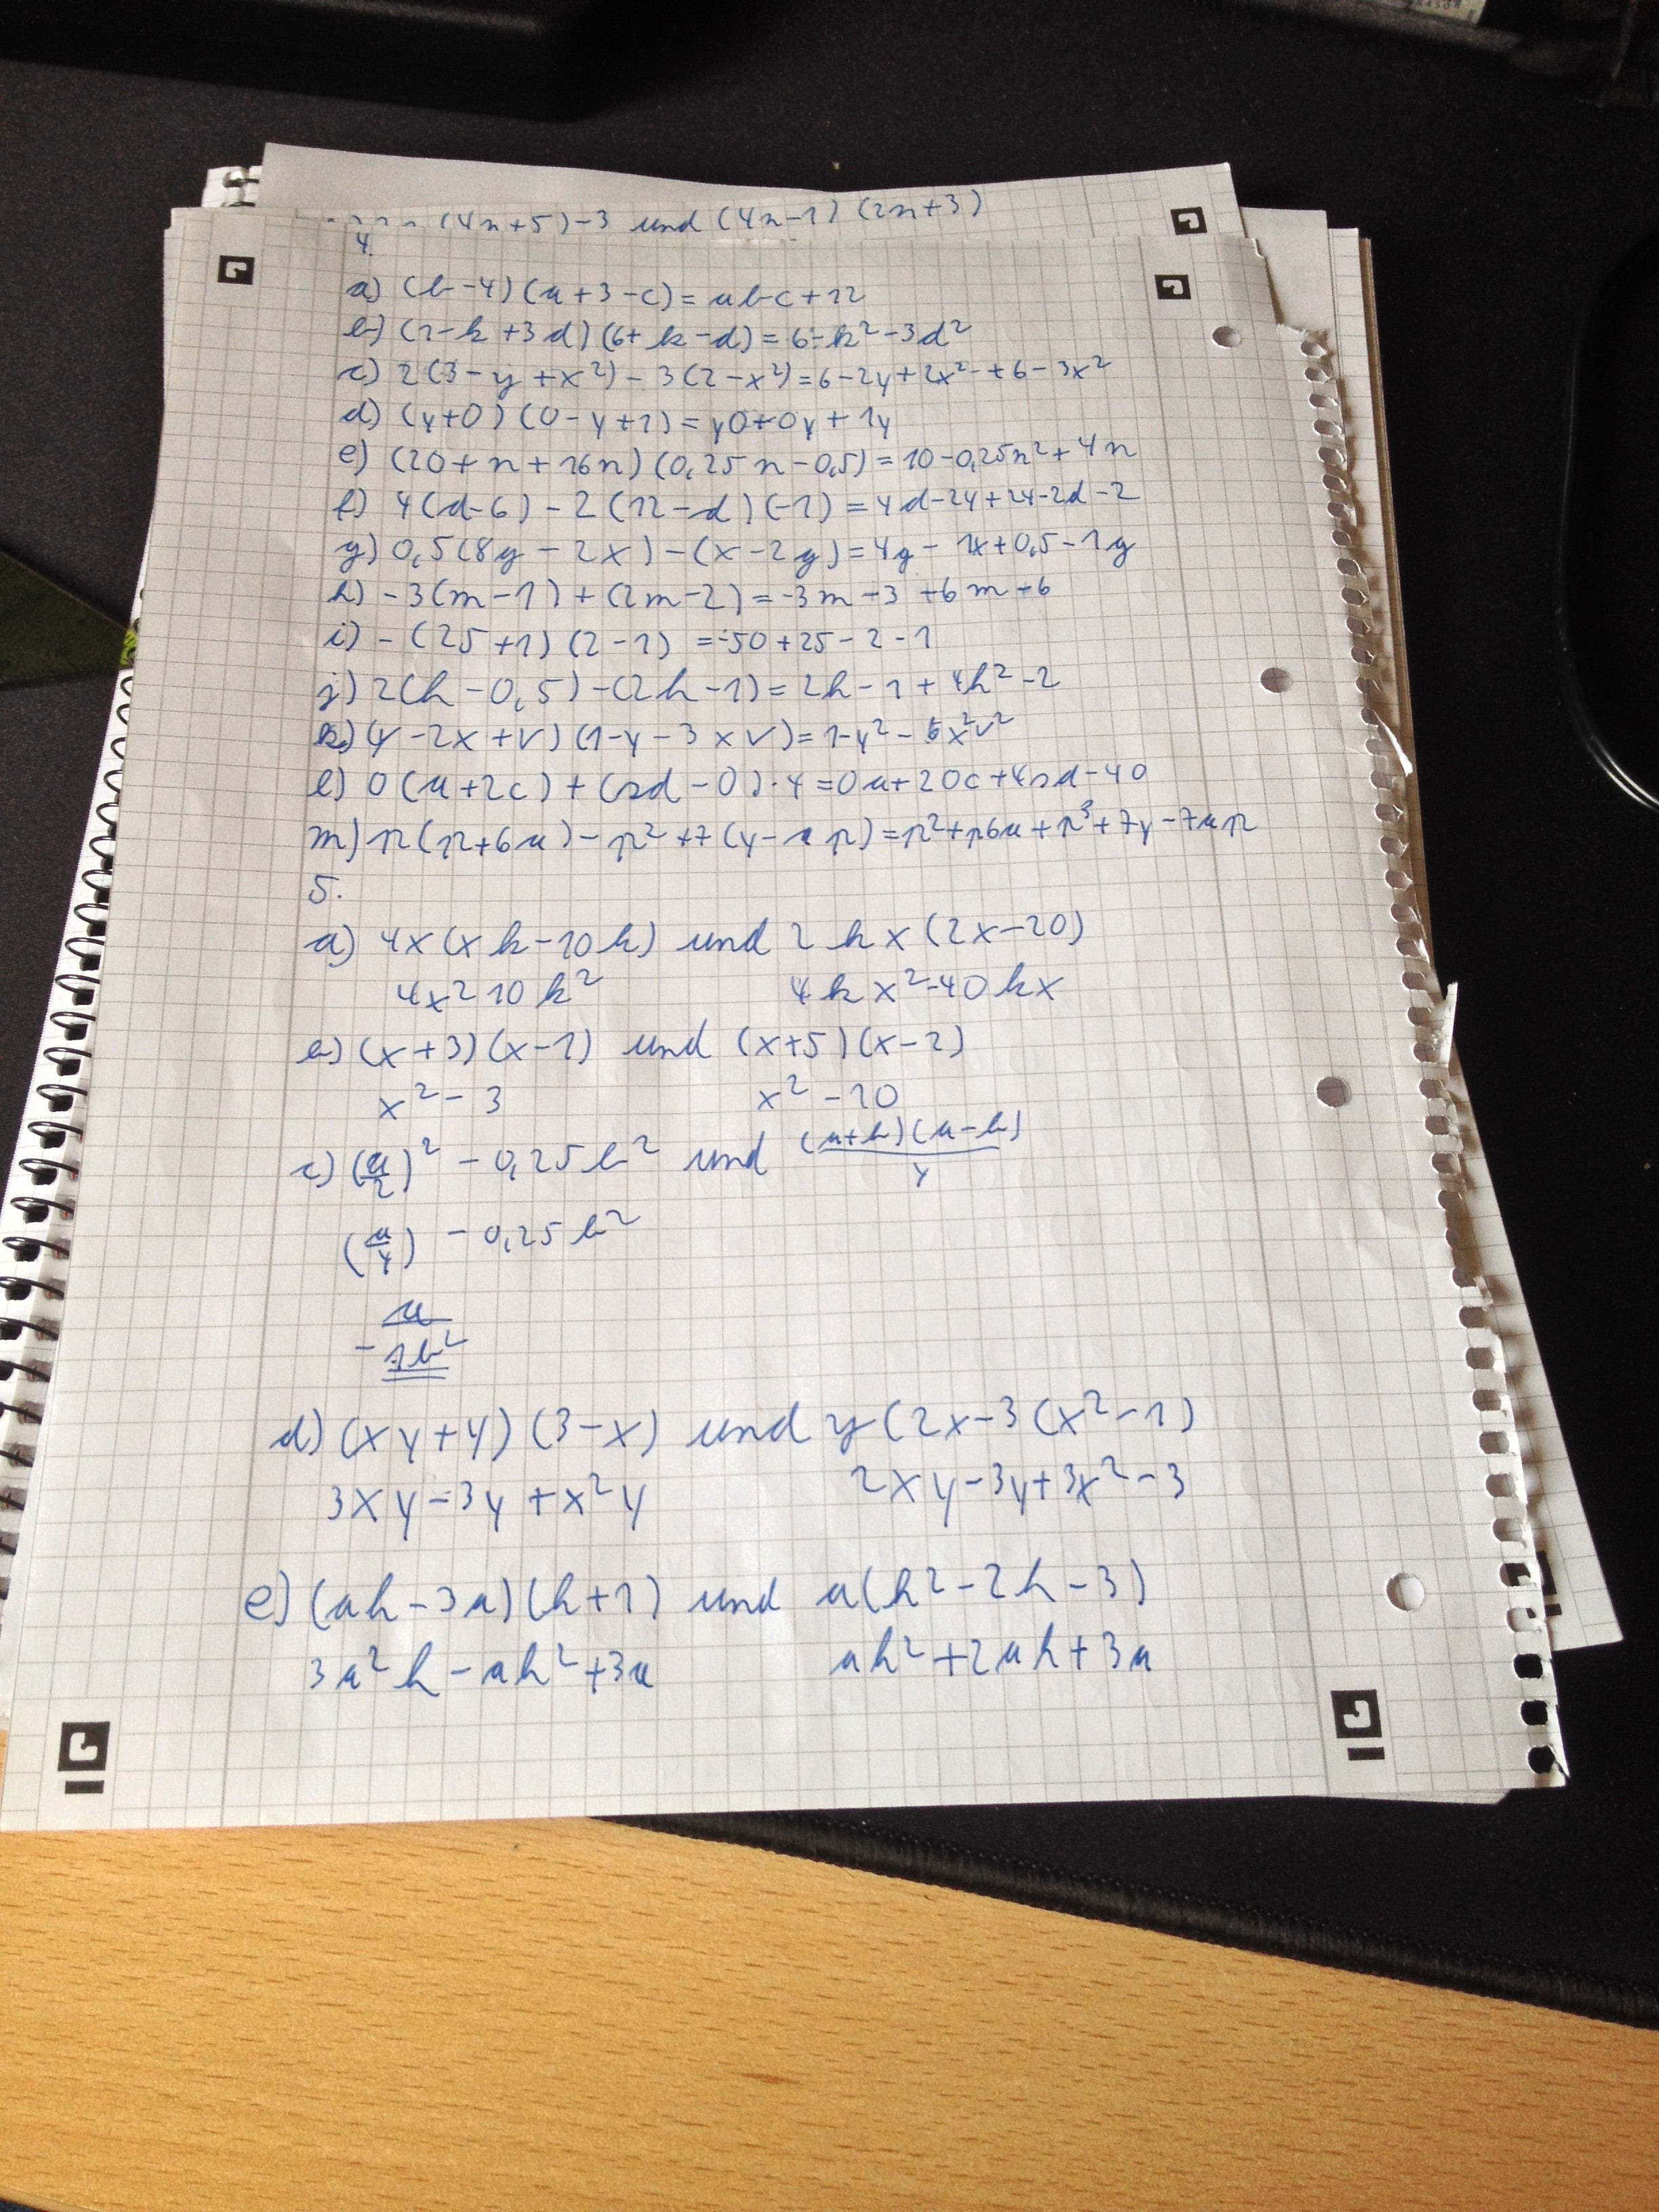 (4n+5)-3 und (4n-1)(2n+3)
4.
a) (b-4)(a+3-c)=abc+12
b) (1-k+3d)(6+k-d)=6-k²-3d²
c) 2(3-y+x²)-3(2-x²)=6-2y+2x²-+6-3x²
d) (y+0)(0-y+1)=y0+0y+1y
e) (20+n+16n)(0,25n-0,5)=10-0,25n²+4n
f) 4(d-6)-2(12-d)(-1)=4d-24+24-2d-2
g) 0,5(8g-2x)-(x-2g)=4g-1x+0,5-1g
h) -3(m-1)+(2m-2)=-3m-3+6m+6
i) -(25+1)(2-1)=-50+25-2-1
j) 2(h-0,5)-(2h-1)=2h-1+4h²-2
k) (y-2x+v)(1-y-3xv)=1-y²-6x²v²
l) 0(a+2c)+(sd-0)·4=0a+20c+4sd-40
m) r(r+6a)-r²+7(y-ar)=r²+r6a+r³+7y-7ar
5.
a) 4x(xk-10k) und 2kx(2x-20)
4x²10k² 4kx²-40kx
b) (x+3)(x-1) und (x+5)(x-2)
x²-3 x²-10
c) (a/2)²-0,25b² und (a+b)(a-b)/4
(a/4) -0,25b²
- a/1b²
d) (xy+y)(3-x) und y(2x-3(x²-1)
3xy-3y+x²y 2xy-3y+3x²-3
e) (ah-3a)(h+1) und a(h²-2h-3)
3a²h-ah²+3a ah²+2ah+3a